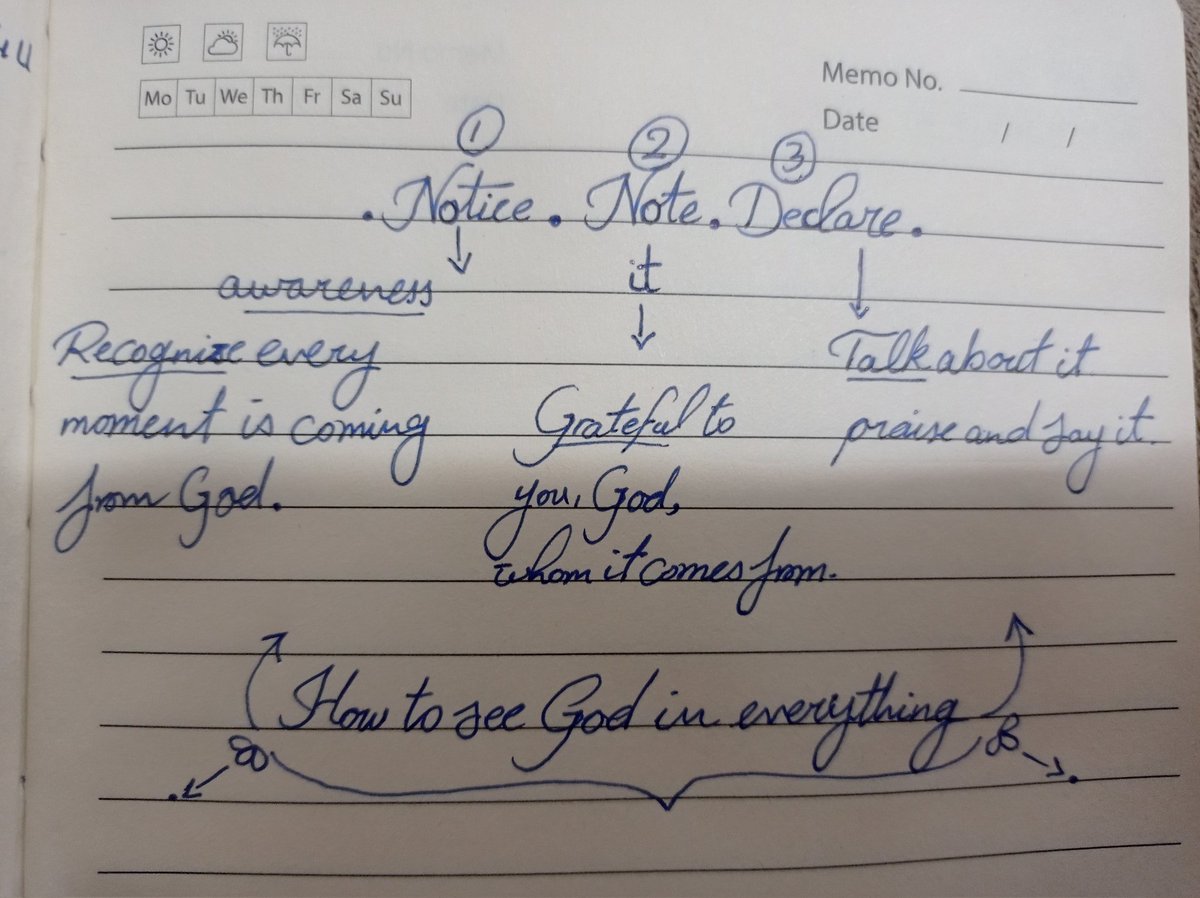 Memo No.
Mo Tu We Th Fr Sa Su
Date / /
① ② ③
. Notice . Note . Declare .
it
awareness
Recognize every
moment is coming
from God.
Grateful to
you, God,
whom it comes from.
Talk about it
praise and say it.
How to see God in everything